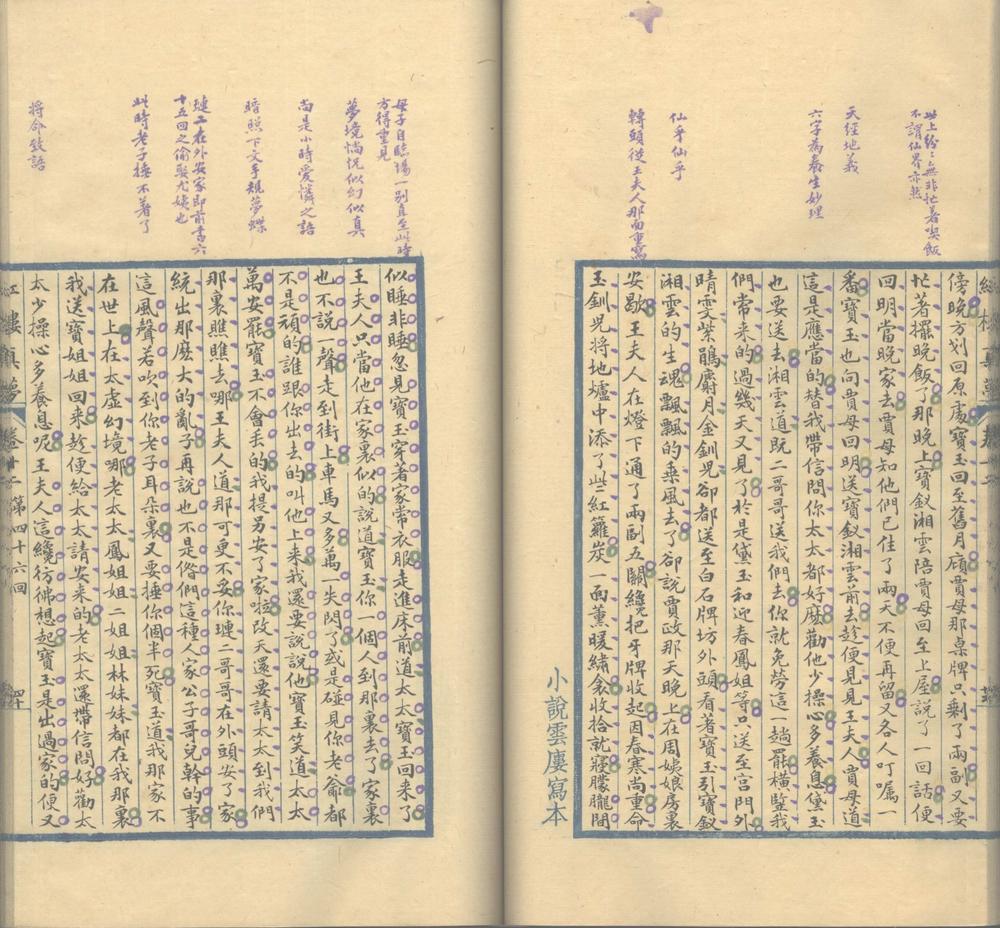 以上紛紛無非忙著喫飯
不謂仙界亦然
天經地義
六字為養生妙理
仙乎仙乎
轉頭從王夫人那面重寫
傍晚方划回原處寶玉回至舊月廎賈母那桌牌只剩了兩副又要
忙著擺晚飯了那晚上寶釵湘雲陪賈母回至上屋說了一回話便
回明當晚家去賈母知他們已住了兩天不便再留又各人叮囑一
番寶玉也向賈母回明送寶釵湘雲前去趁便見見王夫人賈母道
這是應當的替我帶信問你太太都好麽勸他少操心多養息黛玉
也要送去湘雲道既二哥哥送我們去你就免勞這一趟罷橫豎我
們常来的過幾天又見了於是黛玉和迎春鳳姐等只送至宫門外
晴雯紫鵑麝月金釧兒卻都送至白石牌坊外頭看著寶玉引寶釵
湘雲的生魂飄飄的乘風去了卻說賈政那天晚上在周姨娘房裏
安歇王夫人在燈下通了兩副五關纔把牙牌收起因春寒尚重命
玉釧兒將地爐中添了些紅籮炭一面薰暖繡衾收拾就寢朦朧間
小說雲廔寫本
母子自臨場一別直至此時
方得重見
夢境惝怳似幻似真
尚是小時愛憐之語
暗照下文手規夢蝶
璉二在外安家即前書六
十五回之偷娶尤姨也
此時老子捶不著了
将命致語
似睡非睡忽見寶玉穿著家常衣服走進床前道太太寶玉回来了
王夫人只當他在家裏似的說道寶玉你一個人到那裏去了家裏
也不說一聲走到街上車馬又多萬一失閃了或是碰見你老爺都
不是頑的誰跟你出去的叫他上来我還要說說他寶玉笑道太太
萬安罷寶玉不會丢的我提另安了家啦改天還要請太太到我們
那裏瞧瞧去哪王夫人道那可更不妥你璉二哥哥在外頭安了家
統出那麽大的亂子再說也不是偺們這種人家公子哥兒幹的事
這風聲若吹到你老子耳朵裏又要捶你個半死寶玉道我那家不
在世上在太虛幻境哪老太太鳳姐姐二姐姐林妹妹都在我那裏
我送寶姐姐回来趁便給太太請安来的老太太還帶信問好勸太
太少操心多養息呢王夫人這纔彷彿想起寶玉是出過家的便又
紅樓真夢
卷廿二 第四十六回